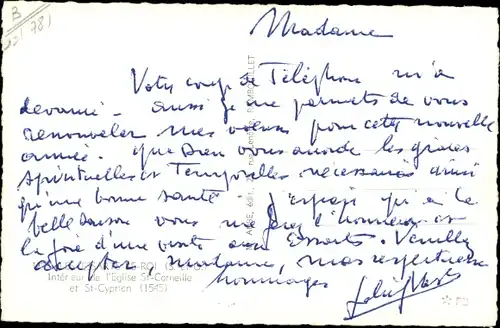 Madame
Votre coup de Téléphone m'a
devancé - aussi je me permets de vous
renouveler mes vœux pour cette nouvelle
année. Que Dieu vous accorde les grâces
spirituelles et Temporelles nécessaires ainsi
qu'une bonne santé J'espère qu'à la
belle saison vous me ferez l'honneur et
la joie d'une visite aux Essarts. Veuillez
accepter, Madame, mes respectueux
hommages
-ROI
Intérieur de l'Église St-Corneille
et St-Cyprien (1545)